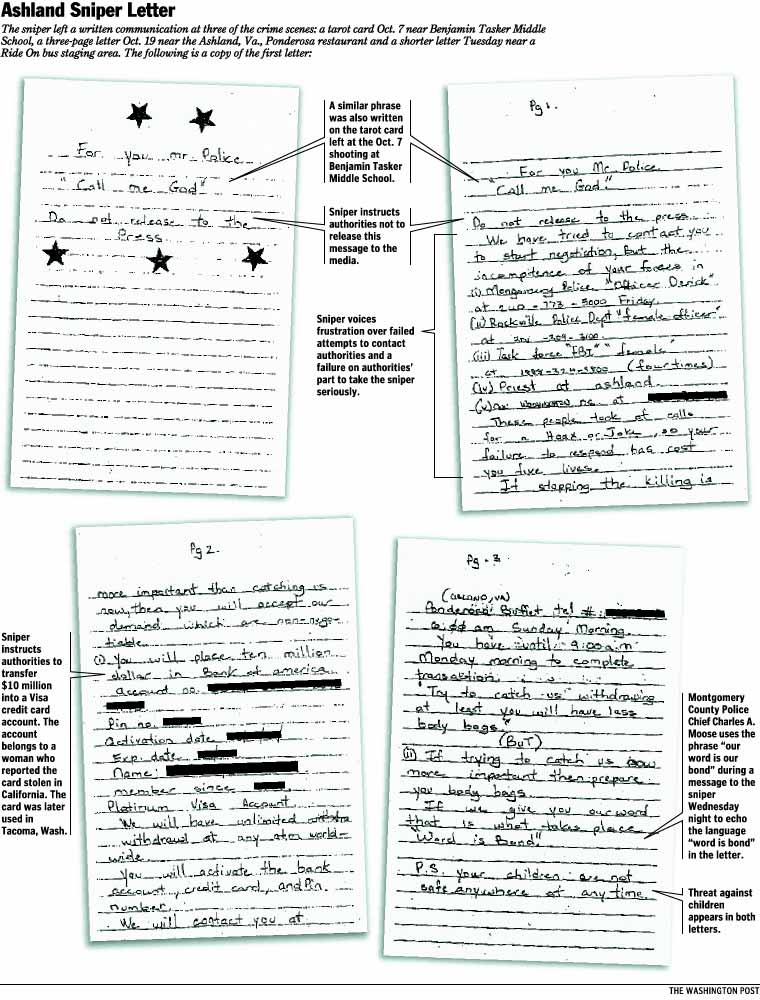 Ashland Sniper Letter
The sniper left a written communication at three of the crime scenes: a tarot card Oct. 7 near Benjamin Tasker Middle
School, a three-page letter Oct. 19 near the Ashland, Va., Ponderosa restaurant and a shorter letter Tuesday near a
Ride On bus staging area. The following is a copy of the first letter:
For you mr. Police
"Call me God"
Do not release to the
Press
A similar phrase
was also written
on the tarot card
left at the Oct. 7
shooting at
Benjamin Tasker
Middle School.
Sniper instructs
authorities not to
release this
message to the
media.
Sniper voices
frustration over failed
attempts to contact
authorities and a
failure on authorities'
part to take the sniper
seriously.
Pg 1.
For you Mr. Police
"Call me God."
Do not release to the press.
We have tried to contact you
to start negotiation, but the
incompitence of your forces in
(i) Mongomery Police "Officer Derick"
at 240-773-5000 Friday.
(ii) Rockville Police Dept "female officer"
at 301-309-3100.
(iii) Task force "FBI" "female"
at (four times)
(iv) Priest at ashland.
(v) at
These people took of calls
for a Hoax or Joke, so your
failure to respond has cost
you five lives.
If stopping the killing is
Pg 2.
more important than catching us
now, then you will accept our
demand which are non-nego-
tiable.
(i) You will place ten million
dollar in Bank of america
account no.
Pin no.
Activation date
Exp. date
Name:
member since
Platinum Visa Account
We will have unlimited
withdrawl at any atm world-
wide.
You will activate the bank
account, credit card, and Pin
number.
We will contact you at
Sniper
instructs
authorities to
transfer
$10 million
into a Visa
credit card
account. The
account
belongs to a
woman who
reported the
card stolen in
California. The
card was later
used in
Tacoma, Wash.
Pg - 3
Ponderosa Buffet tel #:
am Sunday Morning.
You have until 9:00 a.m
Monday morning to complete
transaction.
"Try to catch us" withdrawing
at least you will have less
body bags."
(BuT)
(ii) If trying to catch us now
more important then prepare
you body bags.
If we give you our word
that is what takes place
"Word is Bond."
P.S. your children are not
safe anywhere at any time.
Montgomery
County Police
Chief Charles A.
Moose uses the
phrase "our
word is our
bond" during a
message to the
sniper
Wednesday
night to echo
the language
"word is bond"
in the letter.
Threat against
children
appears in both
letters.
THE WASHINGTON POST